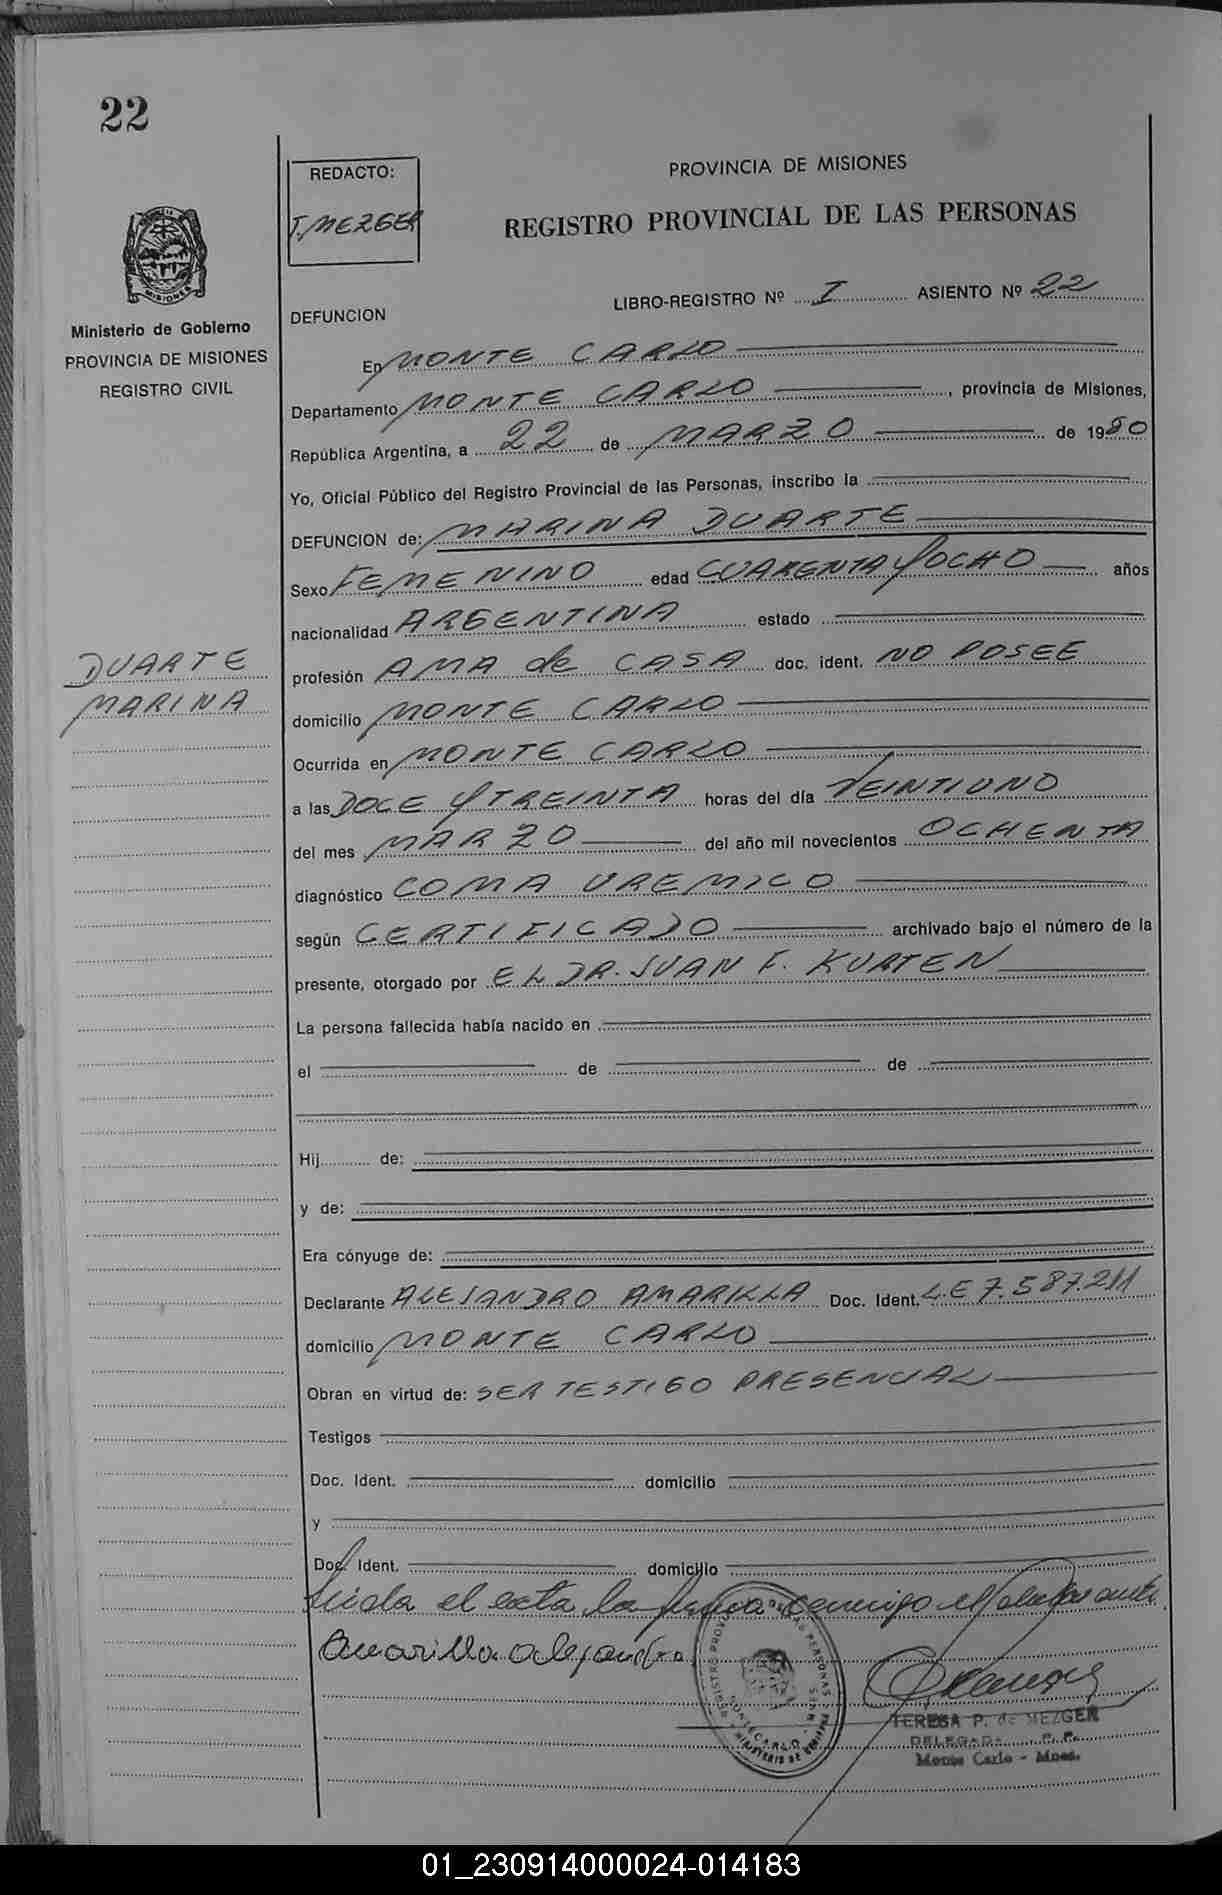 22
REDACTO:
T. MEZGER
PROVINCIA DE MISIONES
REGISTRO PROVINCIAL DE LAS PERSONAS
MISIONES
Ministerio de Gobierno
PROVINCIA DE MISIONES
REGISTRO CIVIL
DEFUNCION
LIBRO-REGISTRO Nº I ASIENTO Nº 22
En MONTE CARLO
Departamento MONTE CARLO, provincia de Misiones,
República Argentina, a 22 de MARZO de 1980
Yo, Oficial Público del Registro Provincial de las Personas, inscribo la
DEFUNCION de: MARINA DUARTE
Sexo FEMENINO edad CUARENTA Y OCHO años
nacionalidad ARGENTINA estado
DUARTE
MARINA
profesión AMA de CASA doc. ident. NO POSEE
domicilio MONTE CARLO
Ocurrida en MONTE CARLO
a las DOCE Y TREINTA horas del día VEINTIUNO
del mes MARZO del año mil novecientos OCHENTA
diagnóstico COMA UREMICO
según CERTIFICADO archivado bajo el número de la
presente, otorgado por EL DR. JUAN F. KURTEN
La persona fallecida había nacido en
el de de
Hij de:
y de:
Era cónyuge de:
Declarante ALEJANDRO AMARILLA Doc. Ident. L.E 7.587.211
domicilio MONTE CARLO
Obran en virtud de: SER TESTIGO PRESENCIAL
Testigos
Doc. Ident. domicilio
y
Doc. Ident. domicilio
Leida el acta, la firma conmigo el declarante
Amarilla alejandro
TERESA P. de MEZGER
DELEGADA R. P. P.
Monte Carlo - Mnes.
01_230914000024-014183